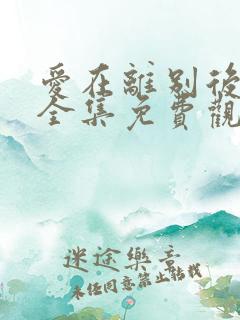 愛在離別後
全集免費觀
迷途樂章
未经同意禁止转载